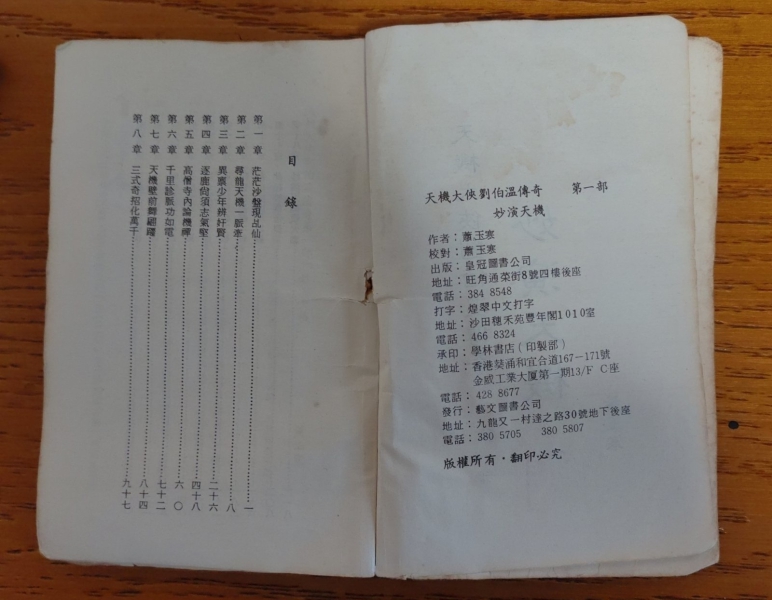 天機大俠劉伯溫傳奇　第一部
妙演天機
作者：蕭玉寒
校對：蕭玉寒
出版：皇冠圖書公司
地址：旺角通菜街8號四樓後座
電話：384 8548
打字：煌翠中文打字
地址：沙田穗禾苑豐年閣1010室
電話：466 8324
承印：學林書店(印製部)
地址：香港葵涌和宜合道167－171號
金威工業大廈第一期13/F C座
電話：428 8677
發行：藝文圖書公司
地址：九龍又一村達之路30號地下後座
電話：380 5705　380 5807
版權所有・翻印必究
目錄
第一章 茫茫沙盤現乩仙……一
第二章 尋龍天機一脈牽……八
第三章 異稟少年辨奸賢……二十六
第四章 逐鹿尚須志氣堅……四十八
第五章 高僧寺內論機禪……六〇
第六章 千里診脈功如電……七十二
第七章 天機壁前舞翩躚……八十四
第八章 三式奇招化萬千……九十七